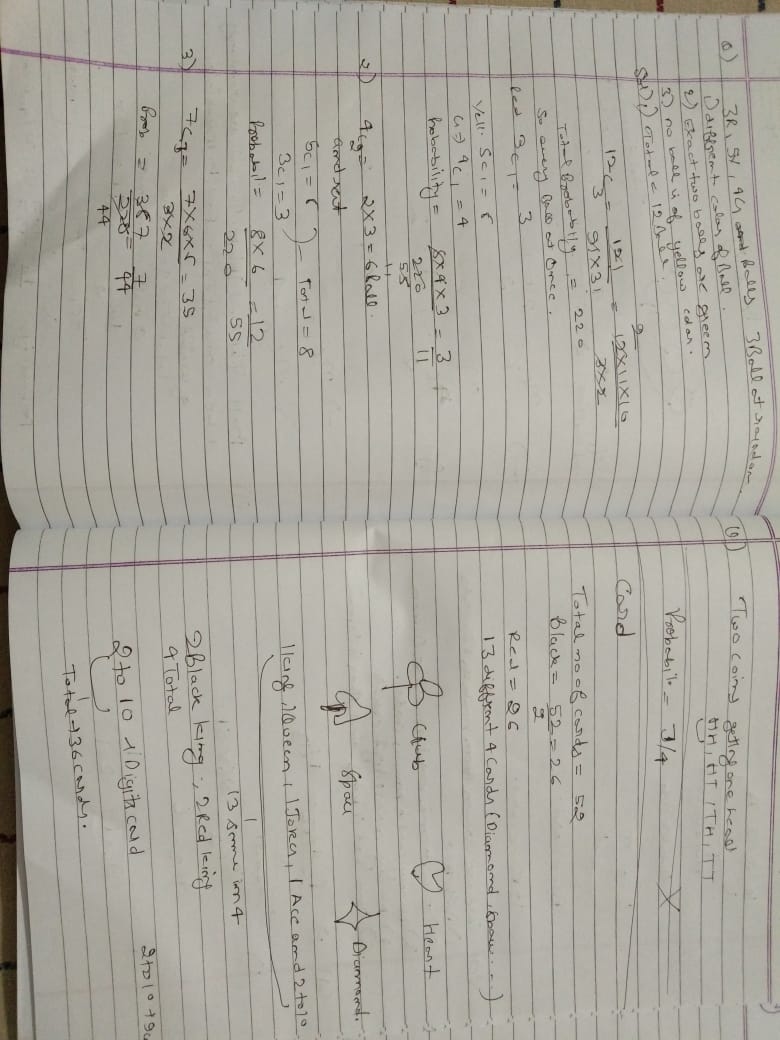 Q) 3R, 5Y, 4G and Balls 3 Ball at random
1) different color of Ball.
2) Exact two balls are green
3) no ball is of yellow color.
1) Total = 12 Balls.
12C3 = 12! / 9! x 3! = 12 x 11 x 10 / 3 x 2
Total Probability = 220
So every Ball at Once.
Red 3C1 = 3
Yell. 5C1 = 5
G => 4C1 = 4
Probability = 5 x 4 x 3 / 220 = 3 / 11
55
2) 4C2 = 2 x 3 = 6 Ball.
and rest
5C1 = 5
3C1 = 3 ) - Total = 8
Probabil = 8 x 6 / 220 = 12 / 55.
3) 7C3 = 7 x 6 x 5 / 3 x 2 = 35
Prob = 35 7 / 220 = 7 / 44
44
Q) Two coins getting one head
HH, HT, TH, TT
Probabilit = 3/4
Card
Total no of cards = 52
Black = 52 / 2 = 26
Red = 26
13 different 4 Cards (Diamond, Spau ...)
Chub Heart
Spau Diamond.
1 King, 1 Queen, 1 Joker, 1 Acc and 2 to 10
13 same in 4
2 Black king, 2 Red king
4 Total
2 to 10 Digits card
2 to 10 + 9
Total → 36 cards.